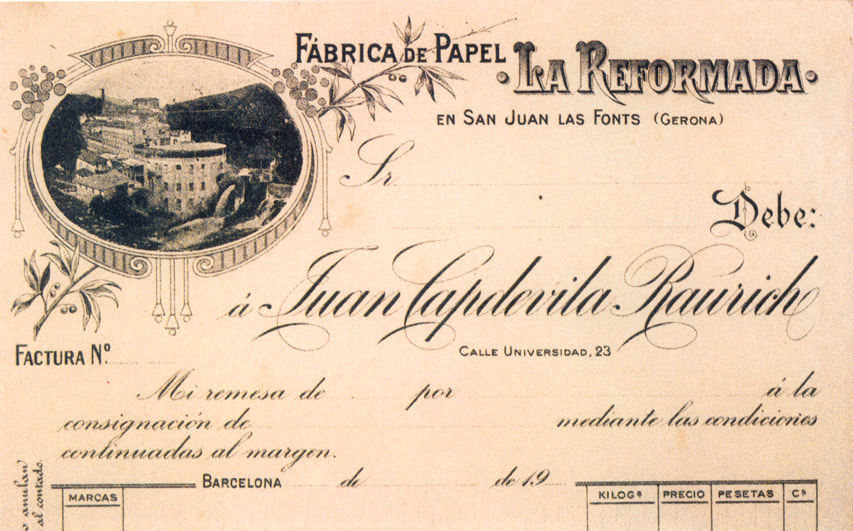 FÁBRICA DE PAPEL · LA REFORMADA ·
EN SAN JUAN LAS FONTS (GERONA)
Sr.
Debe:
á Juan Capdevila Raurich
CALLE UNIVERSIDAD, 23
FACTURA Nº
Mi remesa de por á la
consignación de mediante las condiciones
continuadas al margen.
BARCELONA de de 19
MARCAS KILOGˢ PRECIO PESETAS Cˢ
anulan
al contado.